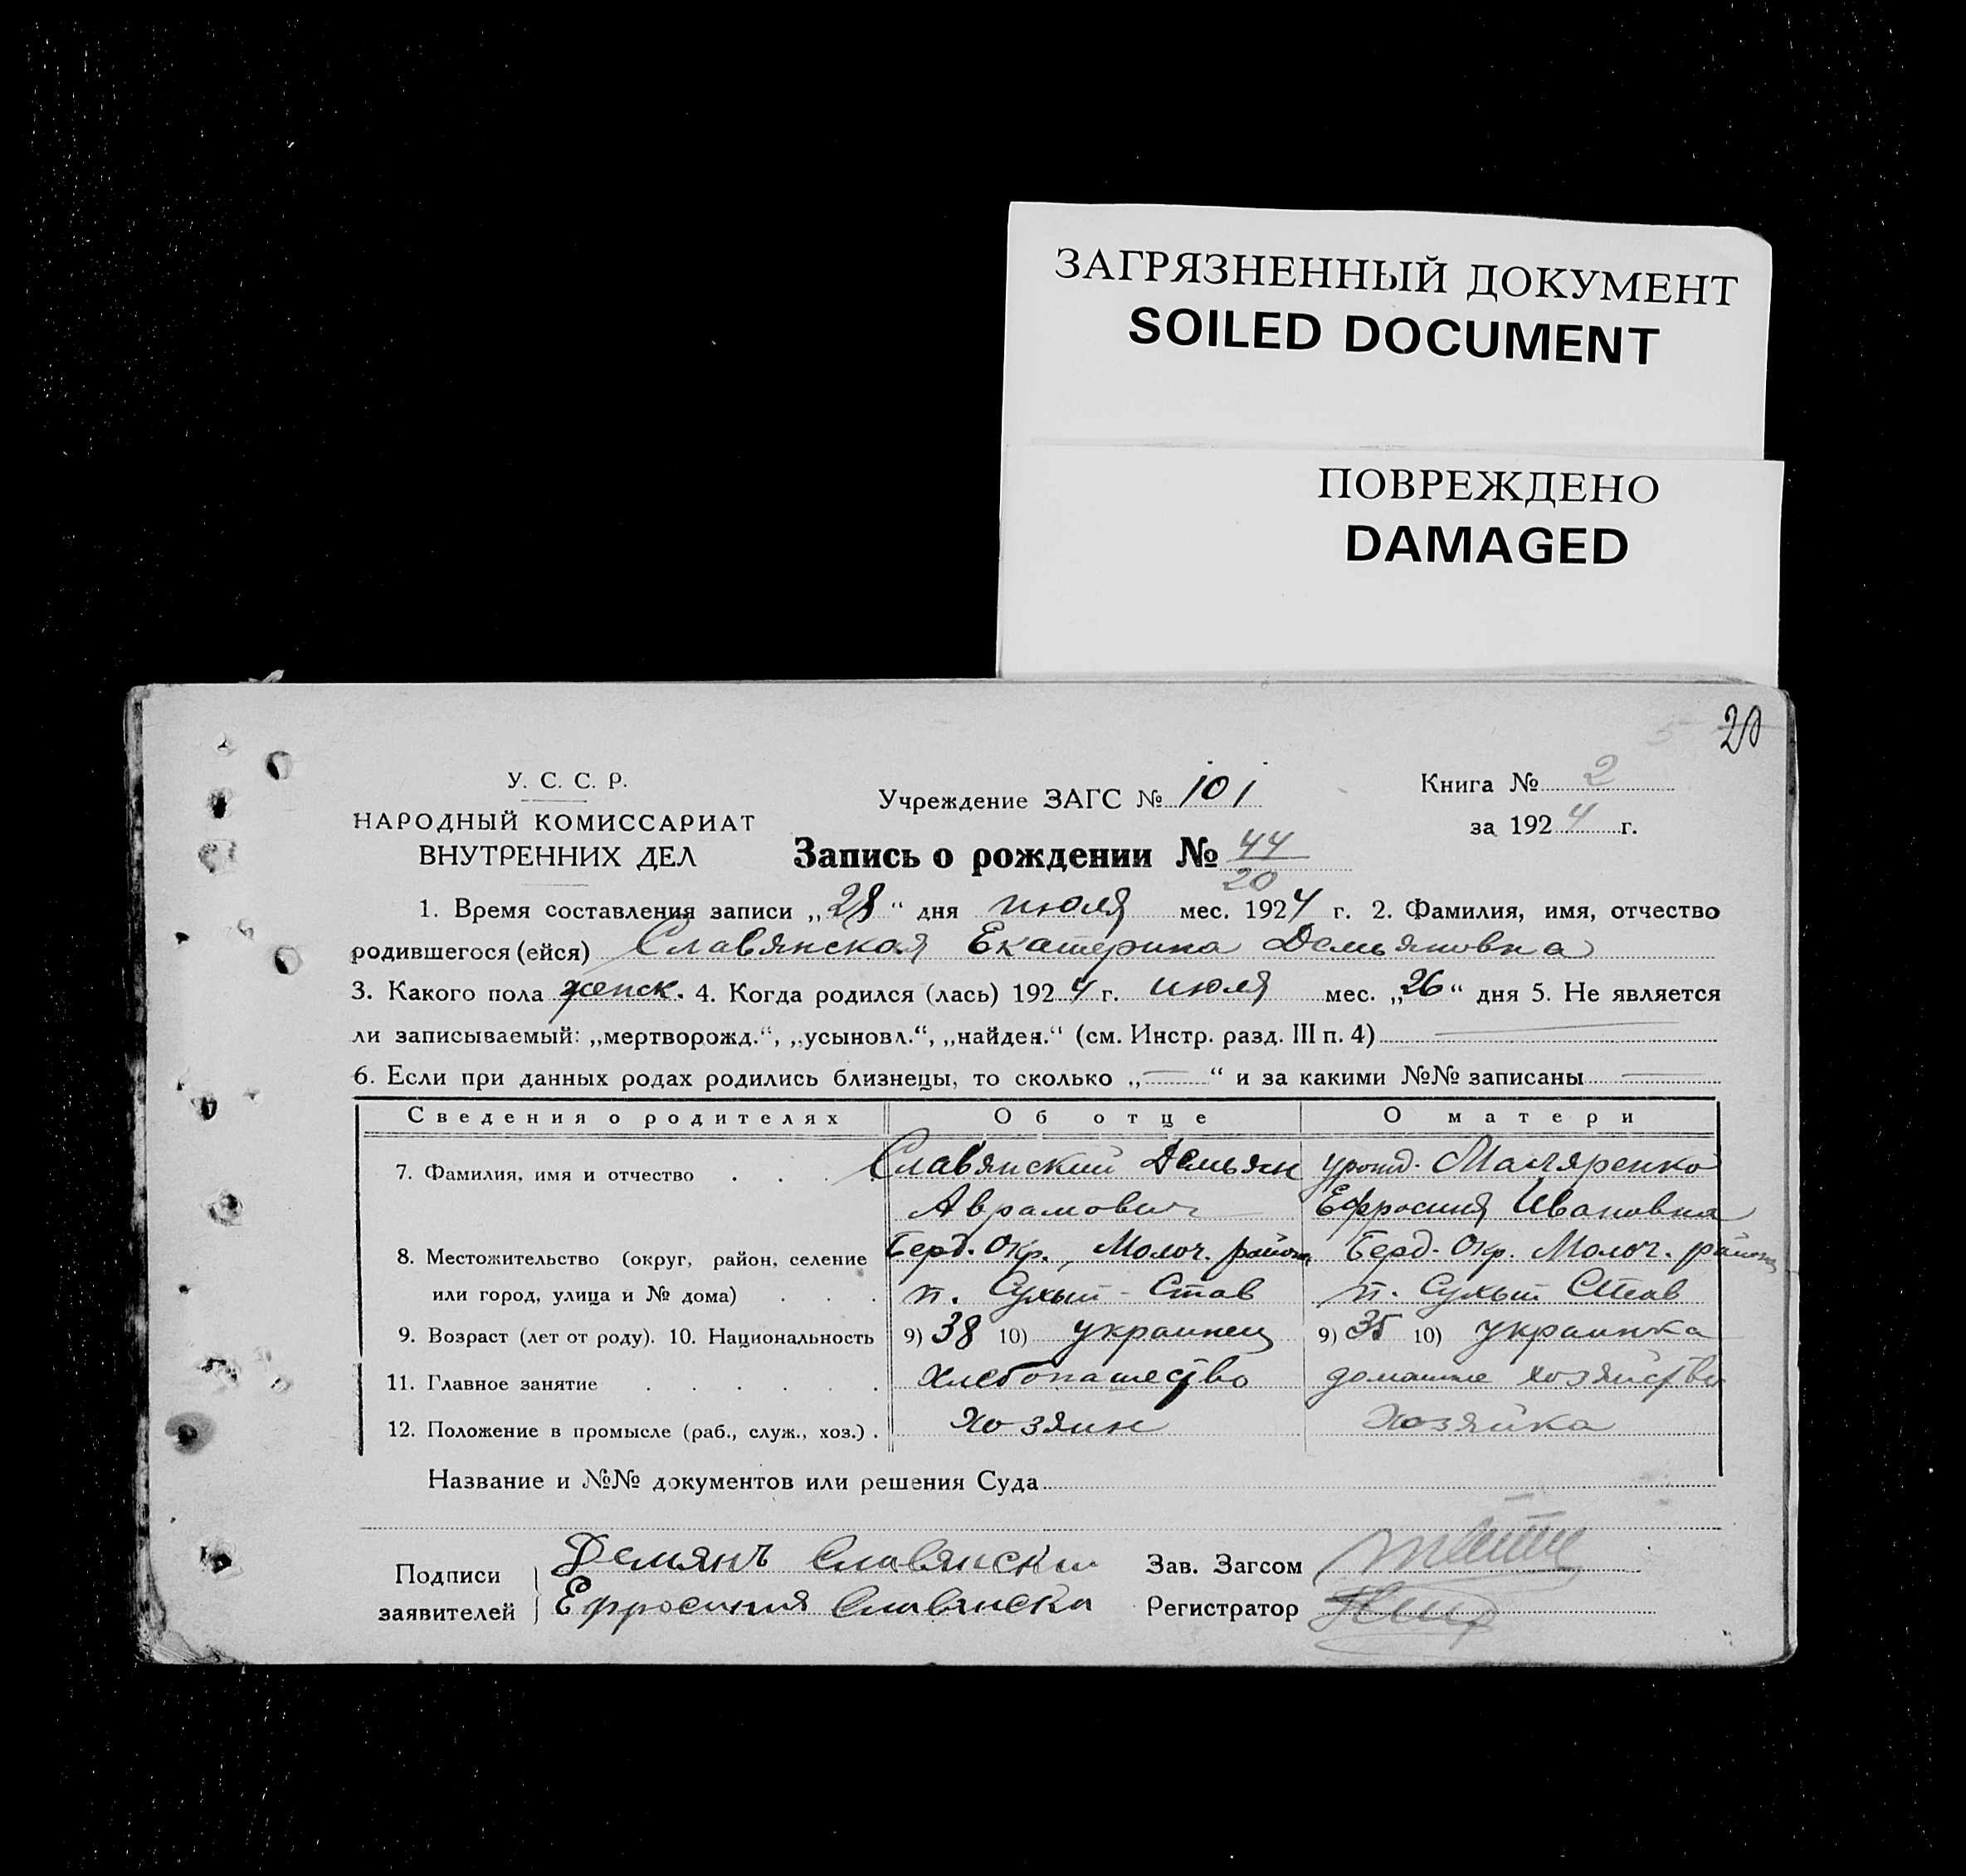 ЗАГРЯЗНЕННЫЙ ДОКУМЕНТ
SOILED DOCUMENT
ПОВРЕЖДЕНО
DAMAGED
20
У. С. С. Р.
НАРОДНЫЙ КОМИССАРИАТ
ВНУТРЕННИХ ДЕЛ
Учреждение ЗАГС № 101
Книга № 2
за 1924 г.
Запись о рождении № 44
20
1. Время составления записи „28“ дня июля мес. 1924 г. 2. Фамилия, имя, отчество
родившегося (ейся) Славянская Екатерина Демьяновна
3. Какого пола женск. 4. Когда родился (лась) 1924 г. июля мес. „26“ дня 5. Не является
ли записываемый: „мертворожд.“, „усыновл.“, „найден.“ (см. Инстр. разд. III п. 4)
6. Если при данных родах родились близнецы, то сколько „—“ и за какими №№ записаны —
Сведения о родителях Об отце О матери
7. Фамилия, имя и отчество . . . Славянский Демьян урожд. Маляренко
Аврамович Ефросиния Ивановна
8. Местожительство (округ, район, селение Берд. Окр., Молоч. района Берд. Окр. Молоч. района
или город, улица и № дома) . . . п. Сухый-Став п. Сухый Став
9. Возраст (лет от роду). 10. Национальность 9) 38 10) украинец 9) 35 10) украинка
11. Главное занятие . . . . . . Хлебопашество домашне хозяйство
12. Положение в промысле (раб., служ., хоз.) . Хозяин Хозяйка
Название и №№ документов или решения Суда
Подписи заявителей
Демянъ Славянски
Ефросиния Славянска
Зав. Загсом
Регистратор